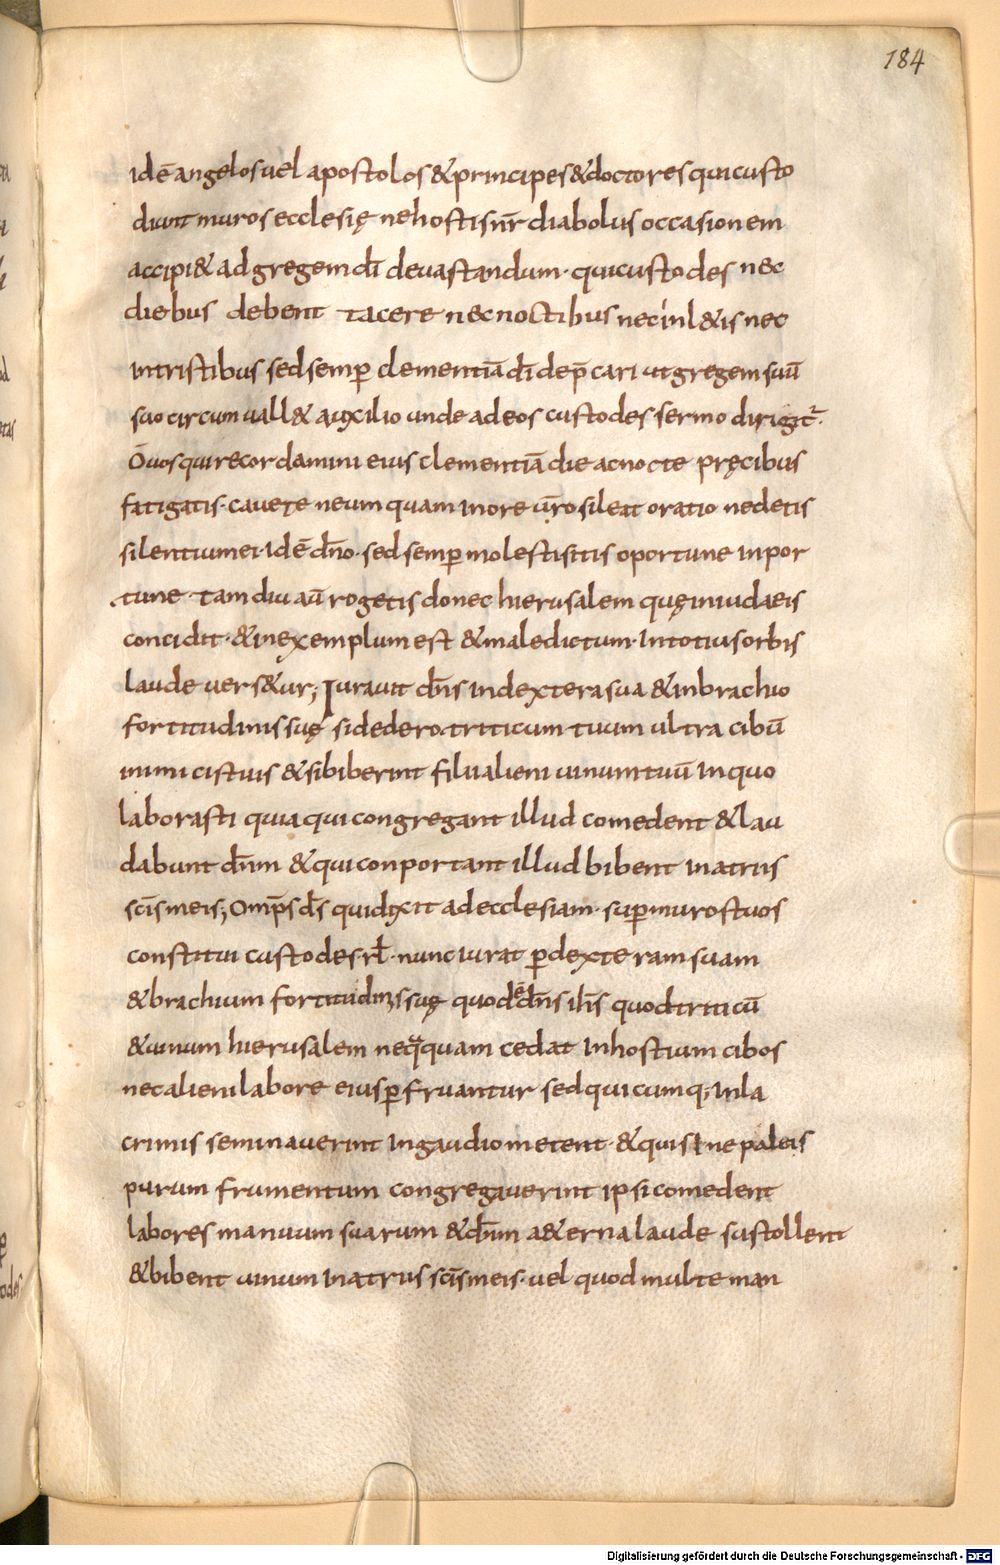 184
idē angelos uel apostolos & principes & doctores qui custo
diunt muros ecclesię ne hostis nr̄ diabolus occasionem
accipi& ad gregem dī deuastandum · qui custodes nec
diebus debent tacere nec noctibus nec in l&is nec
in tristibus sed semp̄ clementiā dī dep̄cari ut gregem suū
suo circum uall& auxilio unde ad eos custodes sermo dirigit̄ ·
O uos qui recordamini eius clementiā die ac nocte pręcibus
fatigatis · cauete ne umquam in ore ur̄o sileat oratio ne detis
silentium ei · idē dn̄o · sed semp̄ molesti sitis oportune inpor
tune · tam diu aū rogetis donec hierusalem quę in iudaeis
concidit · & in exemplum est & maledictum · in totius orbis
laude uers&ur ; Iurauit dn̄s in dextera sua & in brachio
fortitudinis suę si dedero triticum tuum ultra cibū
inimicis tuis & si biberint filii alieni uinum tuū in quo
laborasti quia qui congregant illud comedent & lau
dabunt dn̄m & qui conportant illud bibent in atriis
sc̄is meis ; Omp̄s ds̄ qui dixit ad ecclesiam · sup̄ muros tuos
constitui custodes · rl̄ · nunc iurat p̄ dexteram suam
& brachium fortitudinis suę quod ē dn̄s ih̄s quod triticū
& uinum hierusalem neq̄quam cedat in hostium cibos
nec alieni labore eius p̄fruantur sed quicumq; in la
crimis seminauerint in gaudio metent · & qui sine paleis
purum frumentum congregauerint ipsi comedent
labores manuum suarum & dn̄m a&erna laude sustollent
& bibent uinum in atriis sc̄is meis · uel quod multe man
Digitalisierung gefördert durch die Deutsche Forschungsgemeinschaft - DFG